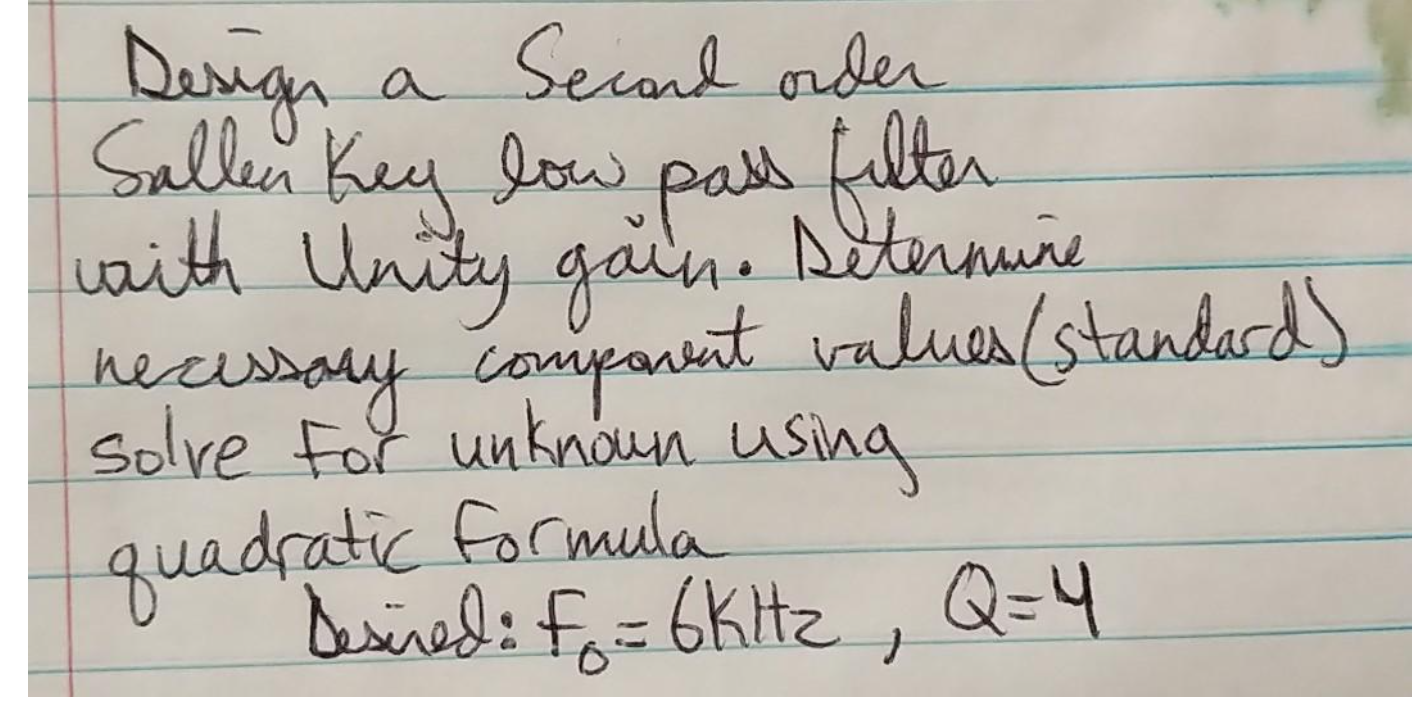 Design a Second order
Sallen Key low pass filter
with Unity gain. Determine
necessary component values (standard)
solve for unknown using
quadratic formula
Desired: Fo = 6KHz , Q=4